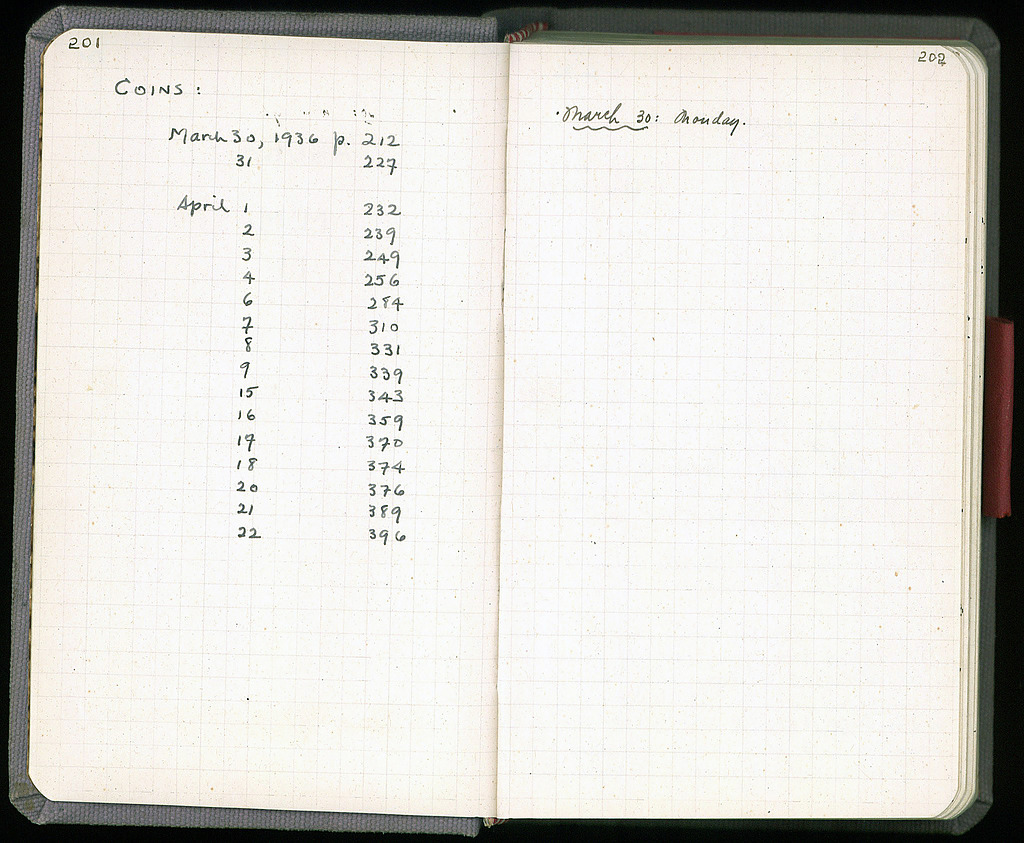 201
COINS:
March 30, 1936 p. 212
31 227
April 1 232
2 239
3 249
4 256
6 284
7 310
8 331
9 339
15 343
16 359
17 370
18 374
20 376
21 389
22 396
202
March 30: Monday.